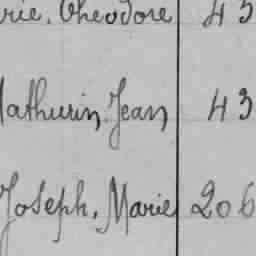 rie, Theodore 43
Mathurin Jean 43
Joseph, Marie 206